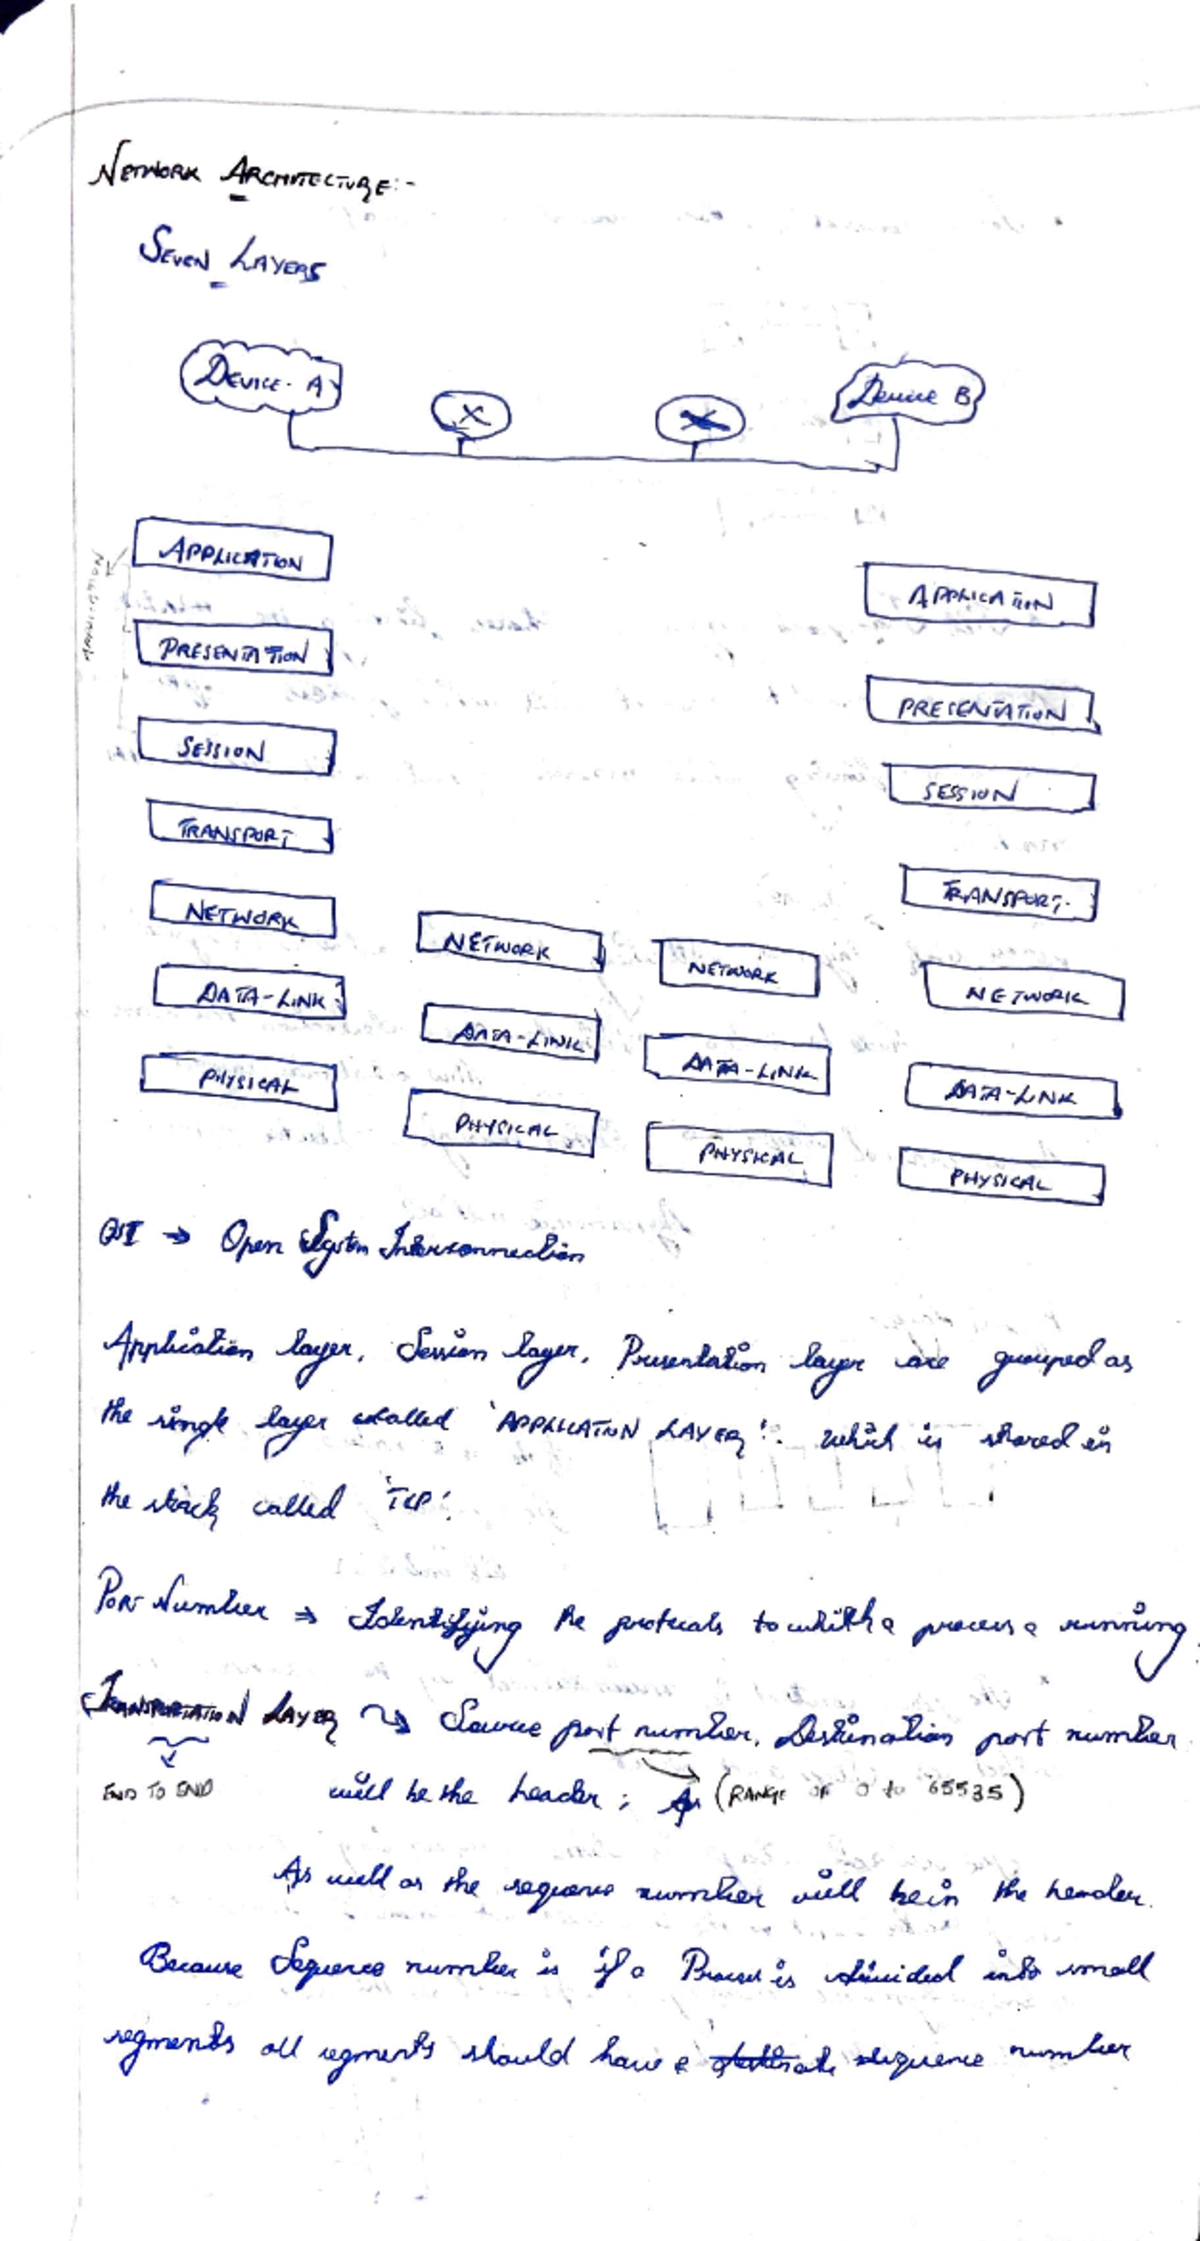 NETWORK ARCHITECTURE:-
SEVEN LAYERS
DEVICE. A
X
X
Device B
APPLICATION
PRESENTATION
SESSION
TRANSPORT
NETWORK
DATA-LINK
PHYSICAL
NETWORK
DATA-LINK
PHYSICAL
NETWORK
DATA-LINK
PHYSICAL
APPLICATION
PRESENTATION
SESSION
TRANSPORT.
NETWORK
DATA-LINK
PHYSICAL
OSI → Open System Interconnection
Application layer, Session layer, Presentation layer are grouped as
the single layer called 'APPLICATION LAYER'. which is shared in
the stack called 'TCP'.
Port Number ⇒ Identifying the protocals to which a process a running.
TRANSPORTATION LAYER → Source port number, Destination port number
END TO END will be the header; (RANGE OF 0 to 65535)
As well as the sequence number will be in the header.
Because Sequence number is if a Process is divided into small
segments all segments should have a sequence number